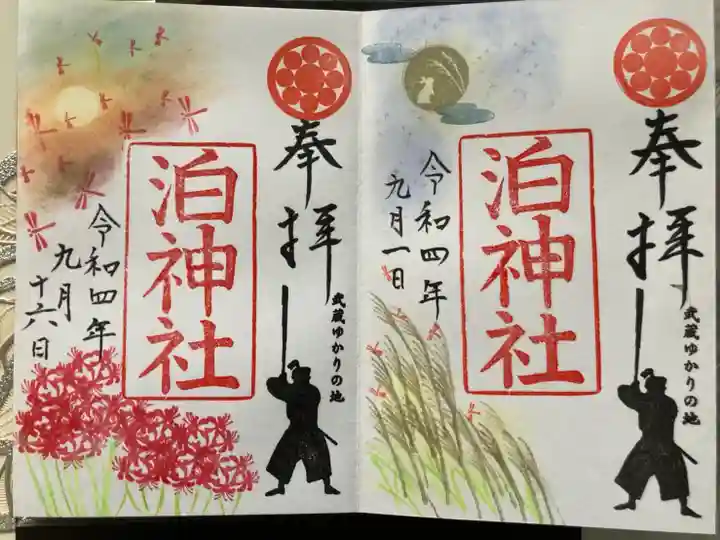 奉拝
武蔵ゆかりの地
泊神社
令和四年
九月一日
奉拝
武蔵ゆかりの地
泊神社
令和四年
九月
十六日